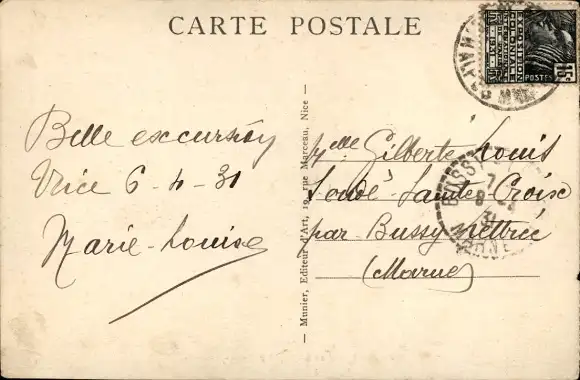 CARTE POSTALE
EXPOSITION
COLONIALE
INTERNATIONALE
POSTES
15c
Belle excursion
Nice 6-4-31
Marie-Louise
— Munier, Editeur d'Art, 19, rue Marceau, Nice —
Melle Gilberte Louis
Soudé-Sainte-Croix
par Bussy-Lettrée
(Marne)
MARNE